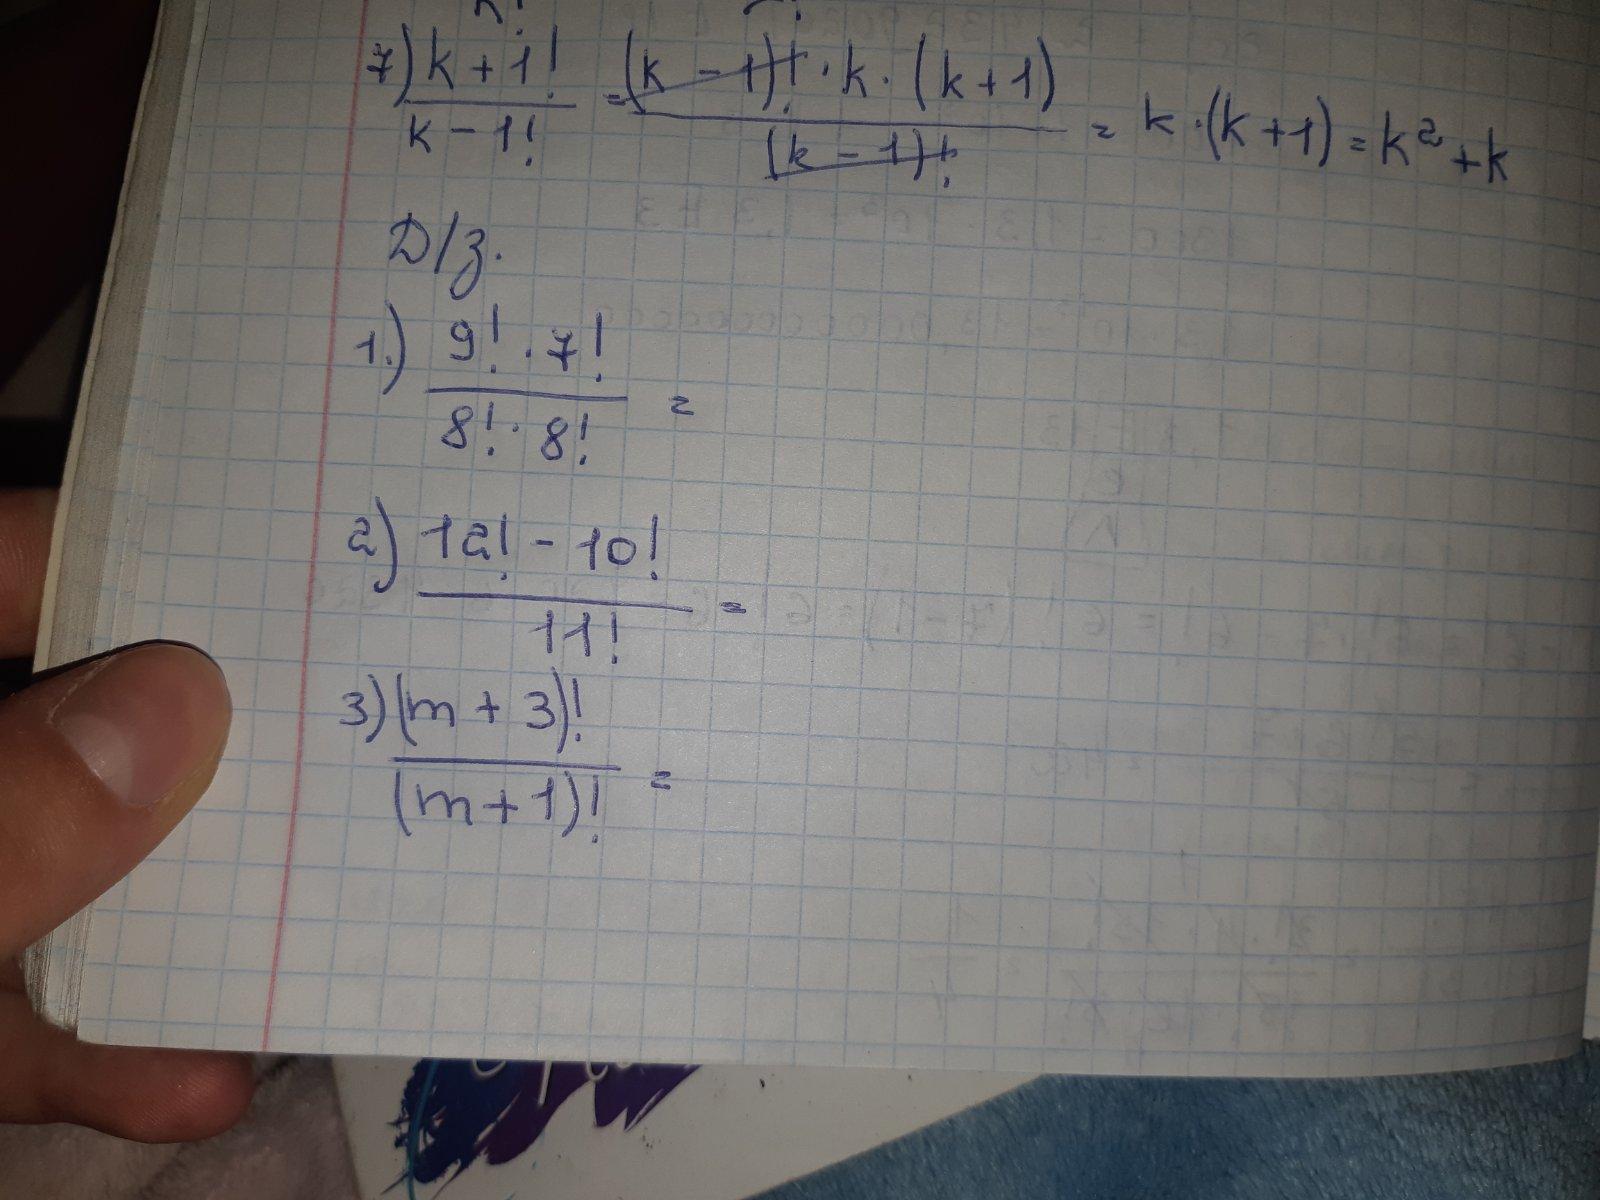 7) k+1! / k-1! = (k-1)! · k · (k+1) / (k-1)! = k · (k+1) = k² + k
Д/з.
1.) 9! · 7! / 8! · 8! =
2) 12! - 10! / 11! =
3) (m + 3)! / (m + 1)! =